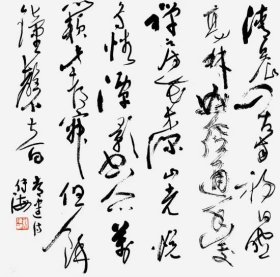 清晨入古寺初日照
高林曲径通幽处
禅房花木深山光悦
鸟性潭影空人心万
籁此俱寂但余
钟磬音
常建诗